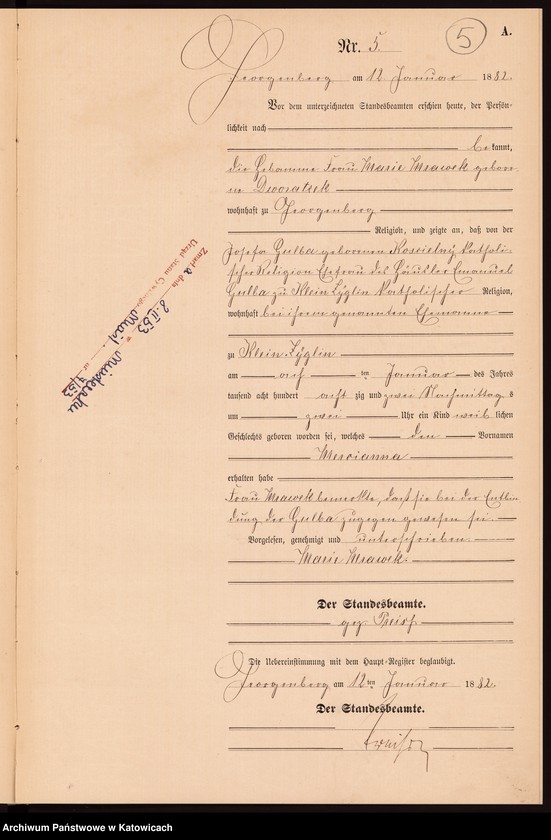 A.
Nr. 5. 5
Georgenberg am 12 Januar 1882.
Vor dem unterzeichneten Standesbeamten erschien heute, der Persön-
lichkeit nach
bekannt,
die Hebamme Frau Marie Mrawek gebore-
ne Dworatzek
wohnhaft zu Georgenberg
Religion, und zeigte an, daß von der
Josefa Gulba geborenen Koscielny katholi-
scher Religion Ehefrau des Häusler Emanuel
Gulba zu Klein Zyglin katholischer Religion,
wohnhaft bei ihrem genannten Ehemanne
zu Klein Zyglin
am acht ten Januar des Jahres
tausend acht hundert acht zig und zwei Nachmittags
um zwei Uhr ein Kind weib lichen
Geschlechts geboren worden sei, welches den Vornamen
Marcianna
erhalten habe
Frau Mrawek bemerkte, daß sie bei der Entbin
dung der Gulba zugegen gewesen sei
Vorgelesen, genehmigt und unterschrieben.
Marie Mrawek.
Der Standesbeamte.
gez.
Die Uebereinstimmung mit dem Haupt-Register beglaubigt.
Georgenberg am 12ten Januar 1882.
Der Standesbeamte.
Zmarła dnia 8.II.53
Urząd Stanu Cywilnego w
Archiwum Państwowe w Katowicach